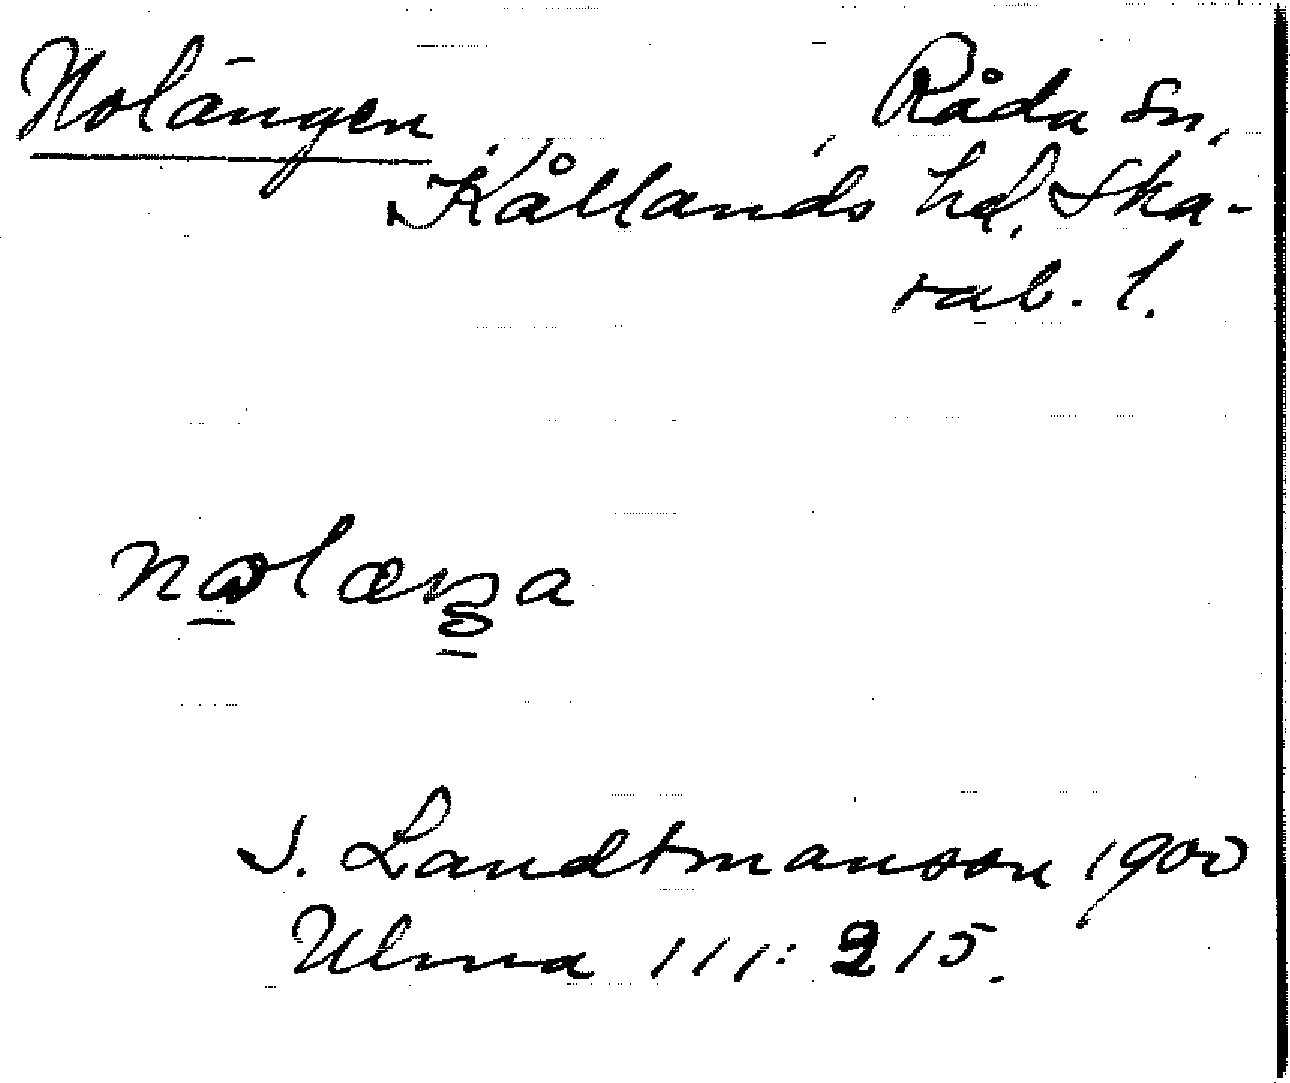 Nolängen
Råda sn,
Kållands hd, Ska-
rab. l.
S. Landtmanson 1900
Ulma 111: 215.